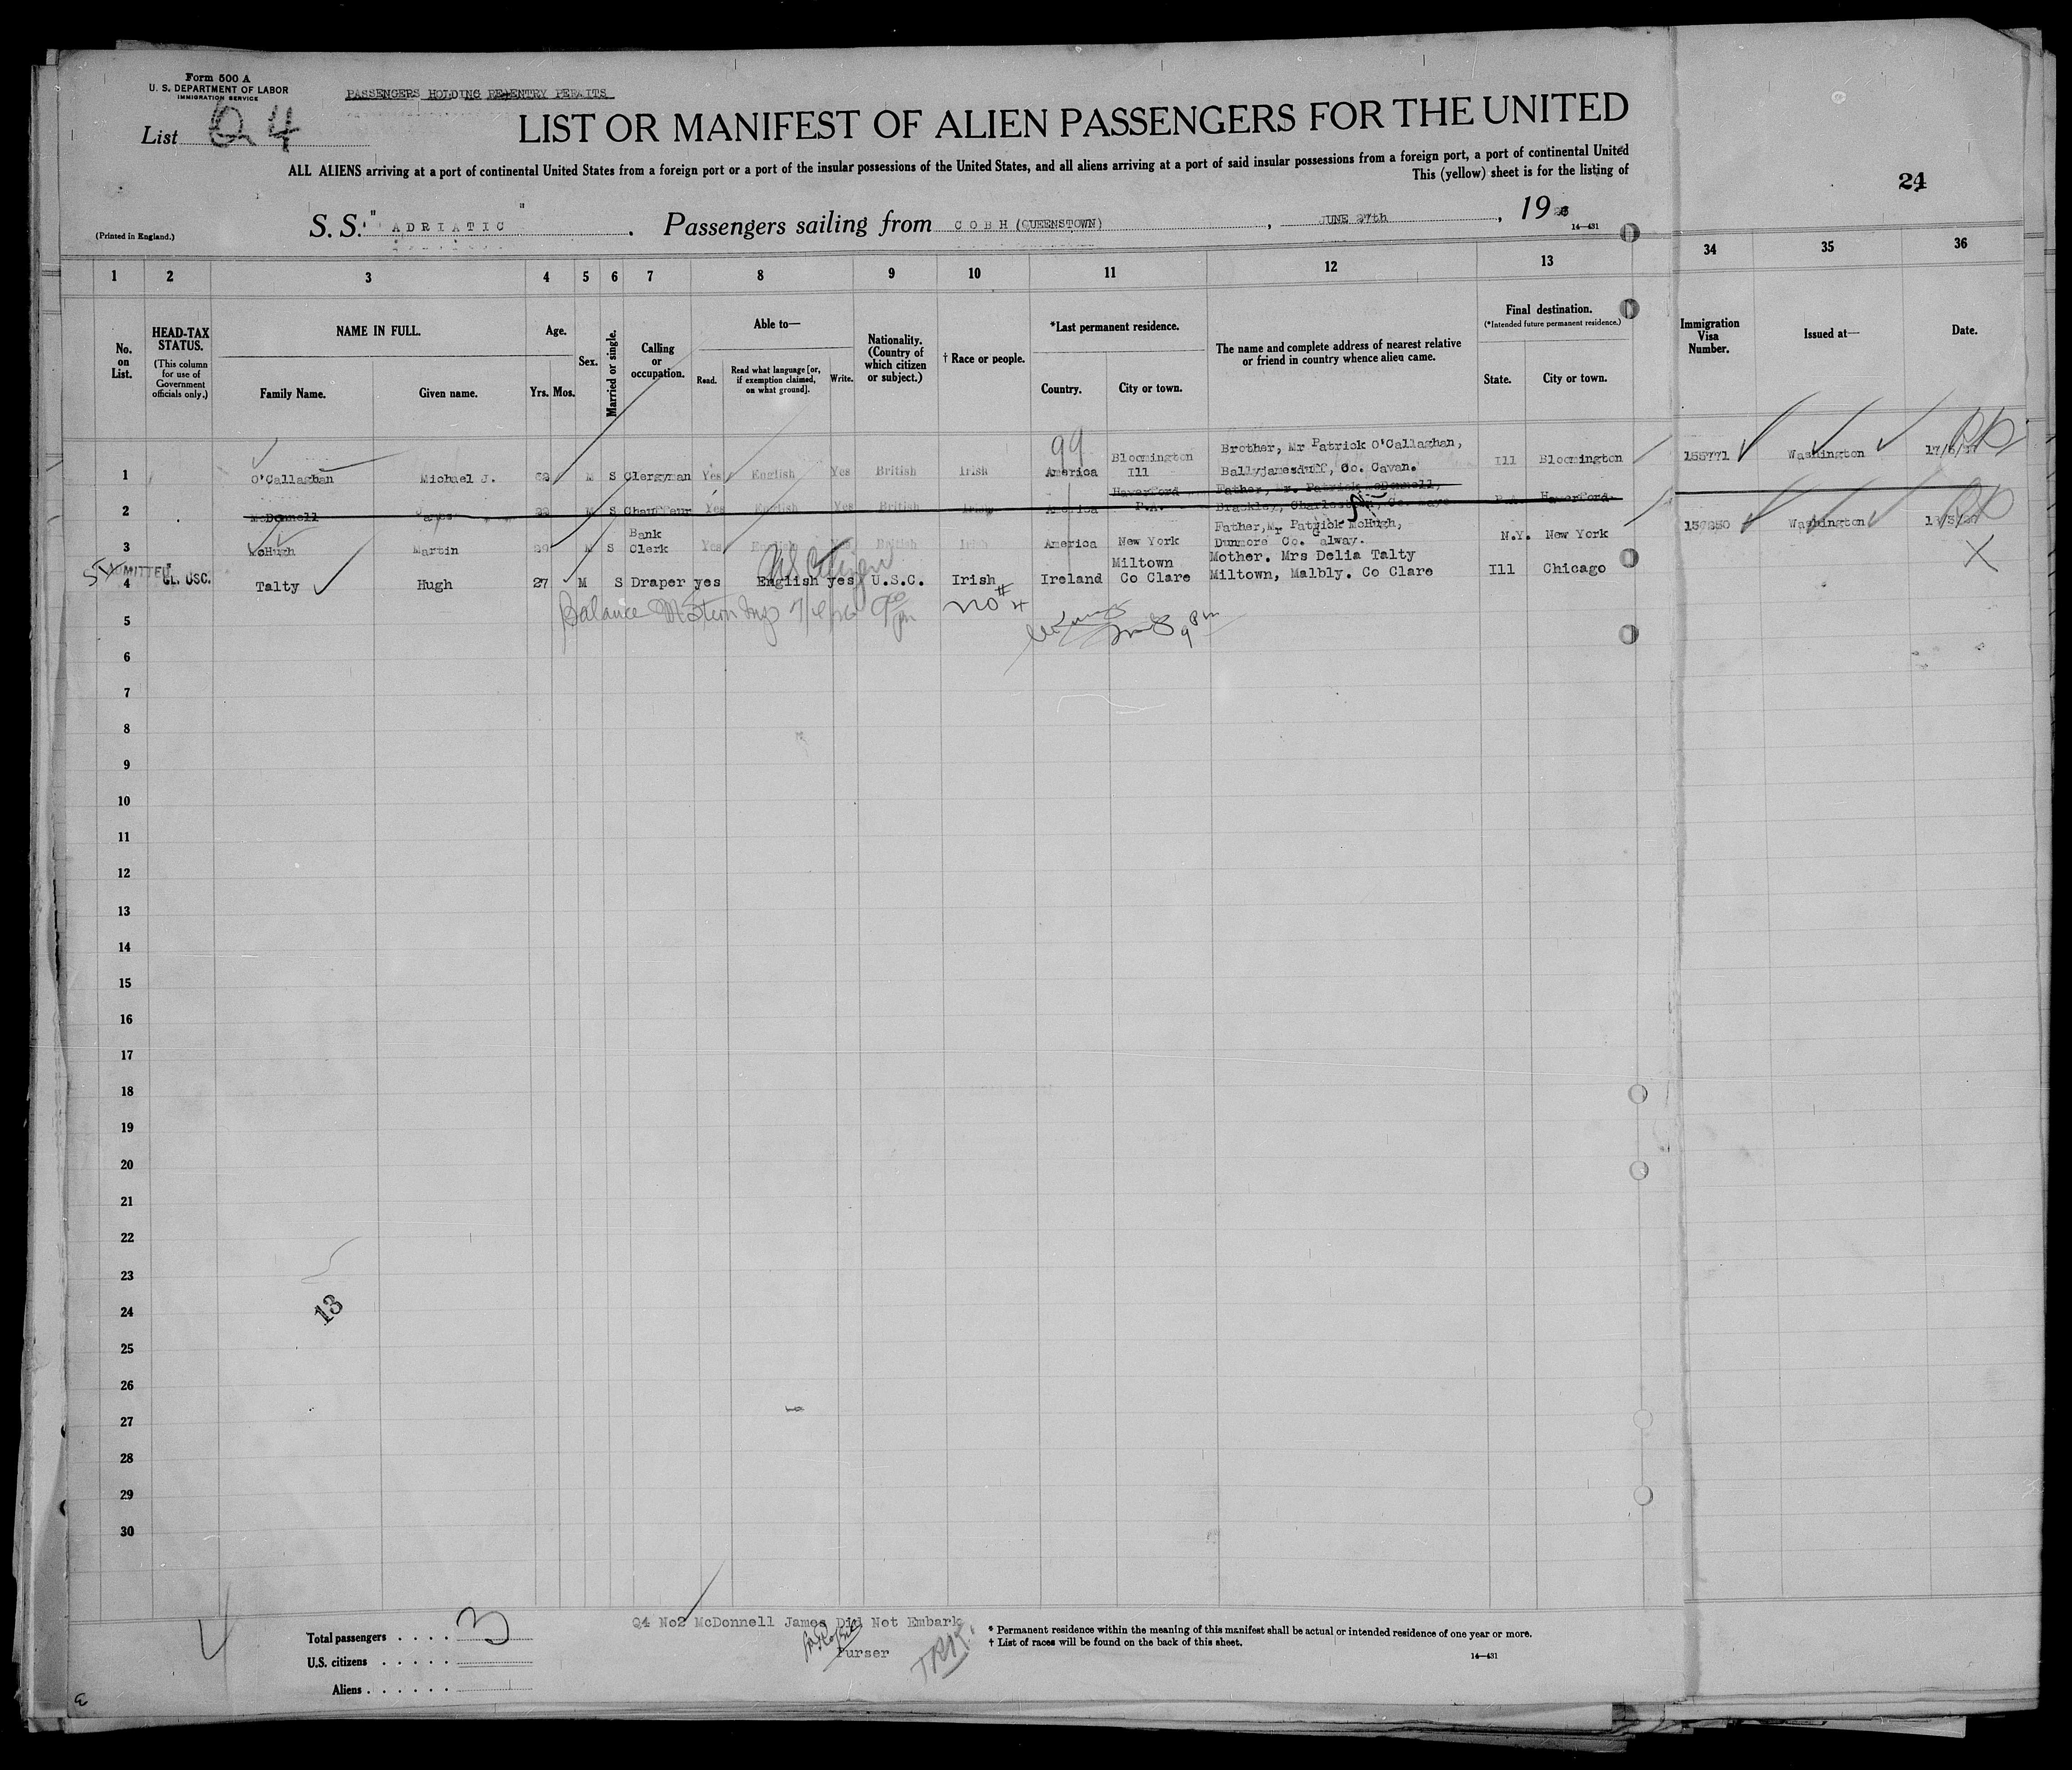 Form 500 A
U. S. DEPARTMENT OF LABOR
IMMIGRATION SERVICE
PASSENGERS HOLDING RE-ENTRY PERMITS
List Q 4
LIST OR MANIFEST OF ALIEN PASSENGERS FOR THE UNITED
ALL ALIENS arriving at a port of continental United States from a foreign port or a port of the insular possessions of the United States, and all aliens arriving at a port of said insular possessions from a foreign port, a port of continental United
This (yellow) sheet is for the listing of
24
(Printed in England.)
S. S. " ADRIATIC " . Passengers sailing from COBH (QUEENSTOWN) , JUNE 27th , 19
14—431
1 2 3 4 5 6 7 8 9 10 11 12 13 34 35 36
No. on List.
HEAD-TAX STATUS.
(This column for use of Government officials only.)
NAME IN FULL.
Family Name.
Given name.
Age.
Yrs. Mos.
Sex.
Married or single.
Calling or occupation.
Able to—
Read.
Read what language [or, if exemption claimed, on what ground].
Write.
Nationality. (Country of which citizen or subject.)
† Race or people.
*Last permanent residence.
Country.
City or town.
The name and complete address of nearest relative or friend in country whence alien came.
Final destination.
(*Intended future permanent residence.)
State.
City or town.
Immigration Visa Number.
Issued at—
Date.
99
Bloomington Brother, Mr Patrick O'Callaghan,
1 O'Callaghan Michael J. M S Clergyman Yes English Yes British Irish America Ill Ballyjamesduff, Co. Cavan. Ill Bloomington 155771 Washington
Haverford Father, Mr. Patrick McDonnell,
2 McDonnell James M S Chauffeur Yes English Yes British Irish America P.A. P.A. Haverford
Bank Father, Mr. Patrick McHugh,
3 McHugh Martin M S Clerk Yes English Yes British Irish America New York Dunmore Co. Galway. N.Y. New York Washington
ADMITTED US Citizen Miltown Mother. Mrs Delia Talty
4 CL. USC. Talty Hugh 27 M S Draper yes English yes U.S.C. Irish Ireland Co Clare Miltown, Malbly. Co Clare Ill Chicago X
5
6
7
8
9
10
11
12
13
14
15
16
17
18
19
20
21
22
23
24
13
25
26
27
28
29
30
Total passengers . . . . 3
U.S. citizens . . . . .
Aliens . . . . . .
Q4 No2 McDonnell James Did Not Embark
Purser
* Permanent residence within the meaning of this manifest shall be actual or intended residence of one year or more.
† List of races will be found on the back of this sheet.
14—431